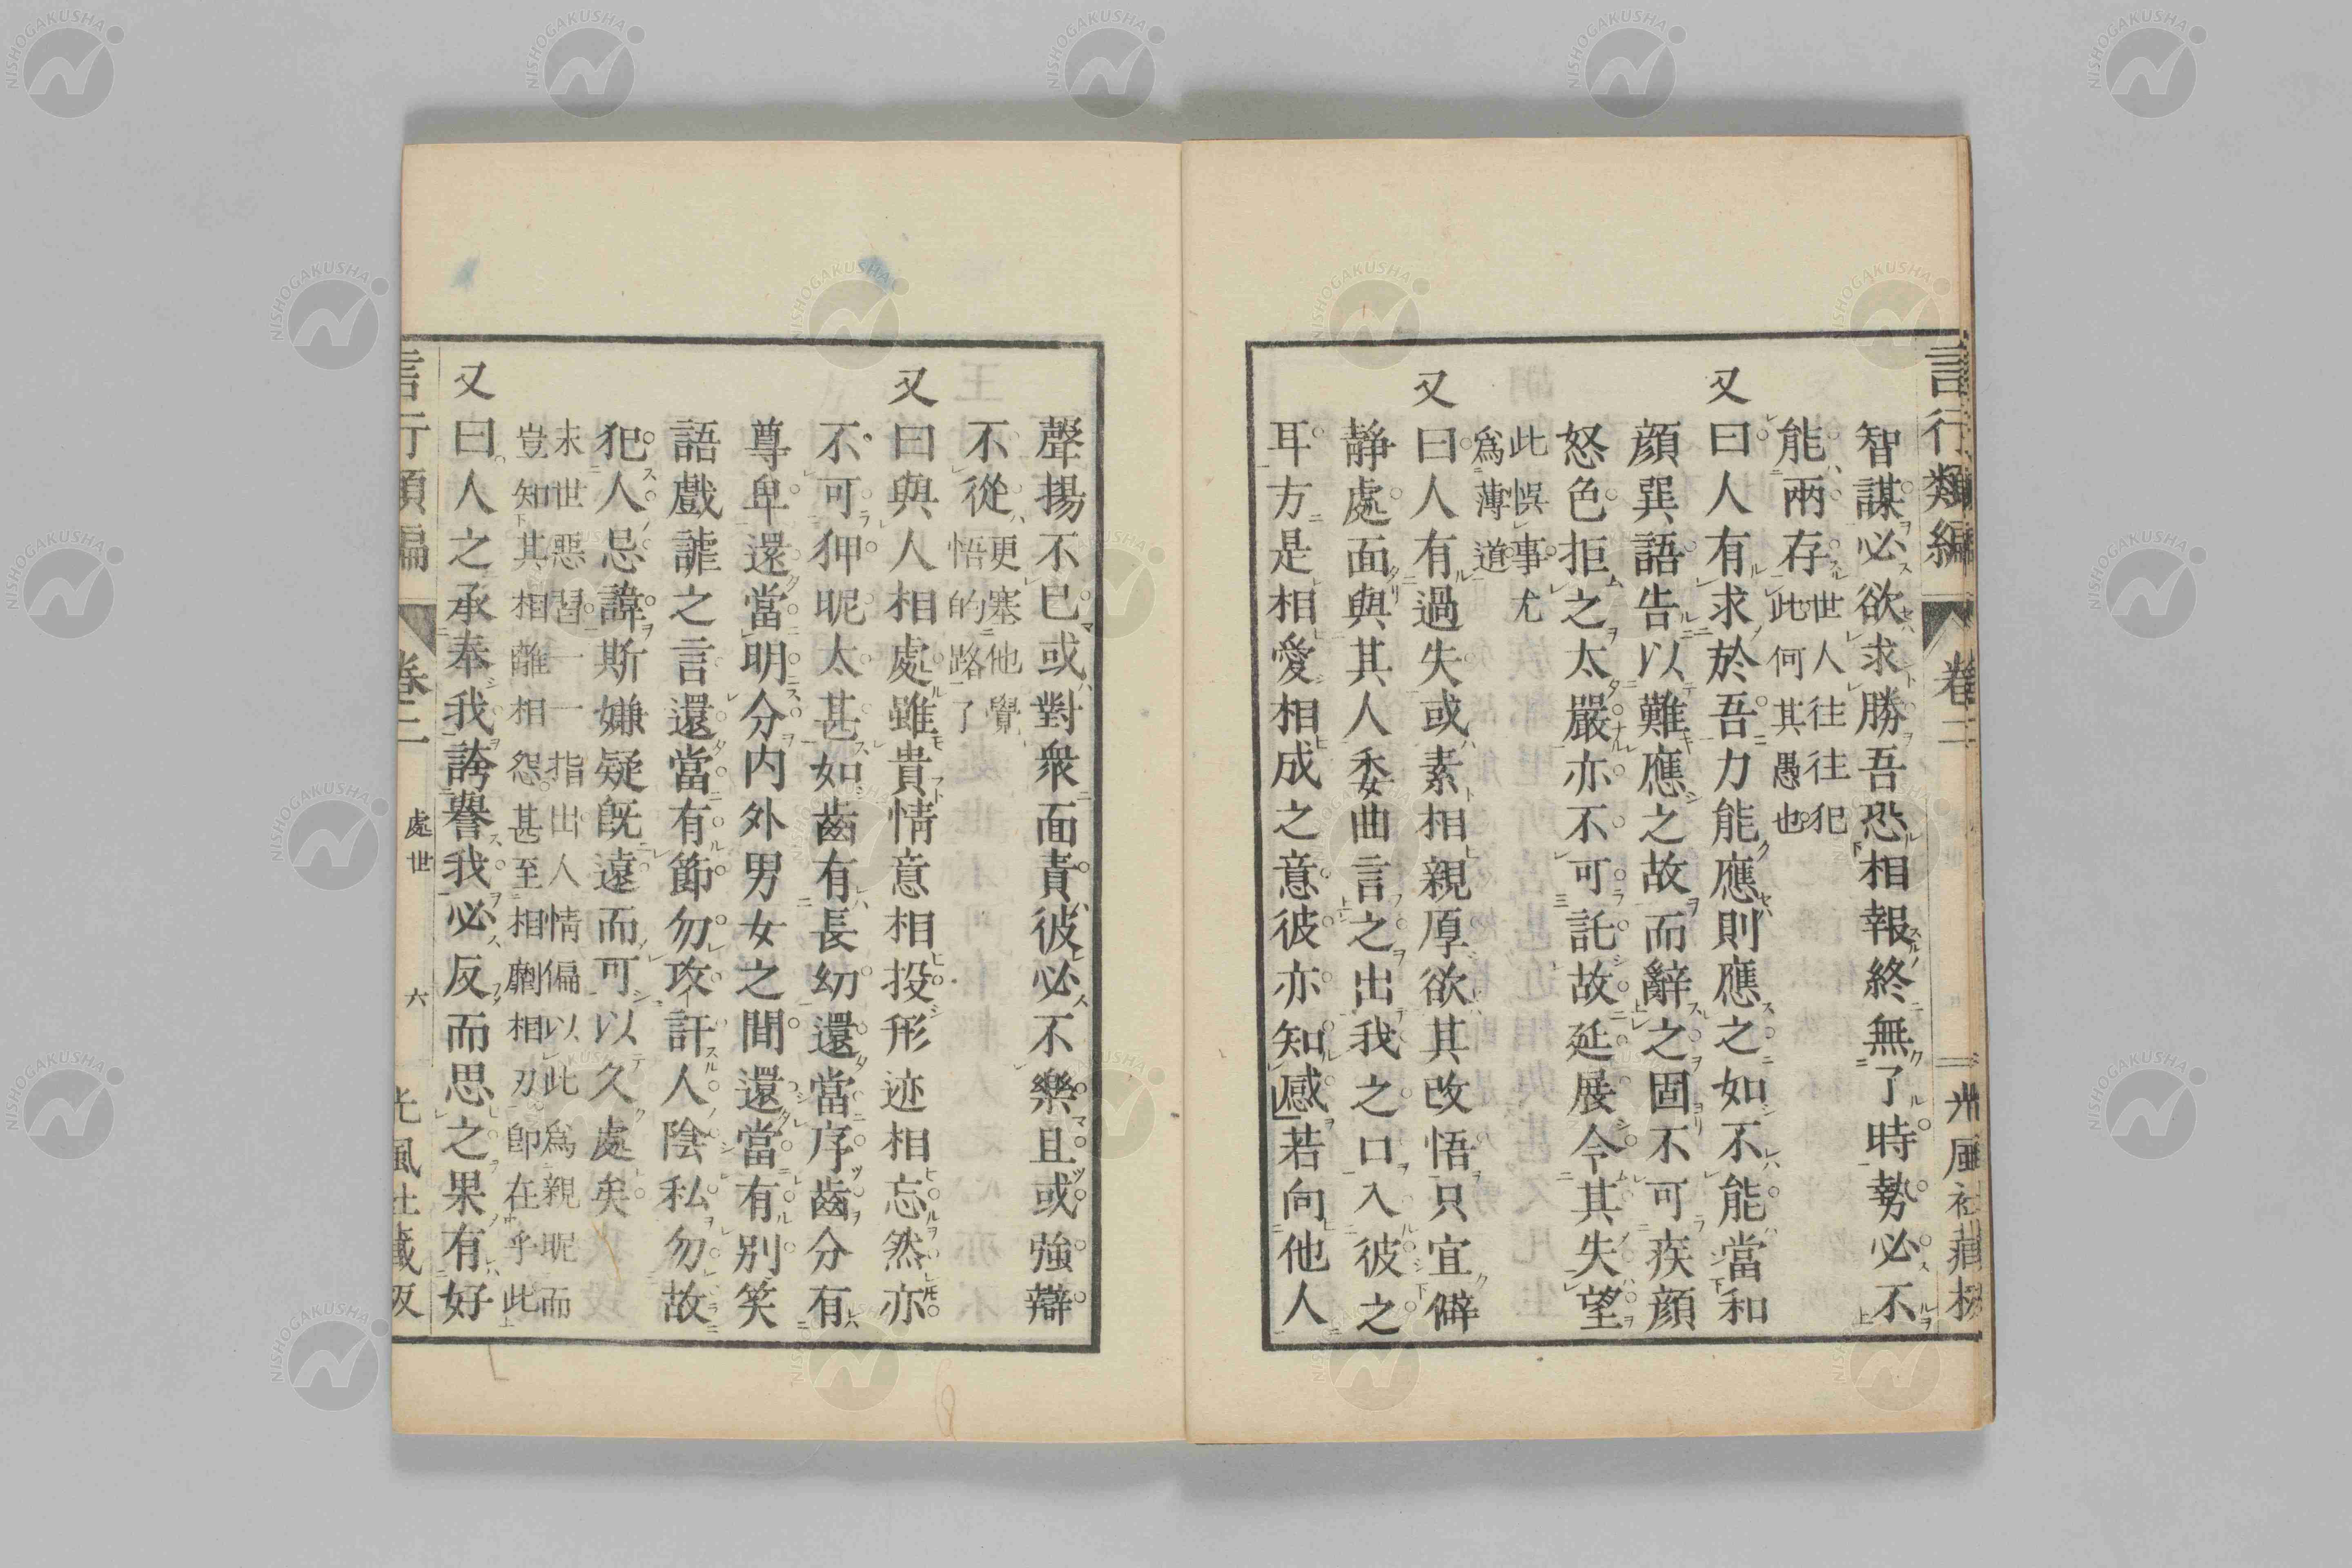 言行類編 卷二
智謀必欲求勝吾恐相報終無了時勢必不
能兩存世人往往犯
此何其愚也
又 曰人有求於吾力能應則應之如不能當和
顔巽語告以難應之故而辭之固不可疾顔
怒色拒之太嚴亦不可託故延展令其失望
此悞事尤
爲薄道
又 曰人有過失或素相親厚欲其改悟只宜僻
静處面與其人委曲言之出我之口入彼之
耳方是相愛相成之意彼亦知感若向他人
聲揚不已或對衆面責彼必不樂且或強辯
不從更塞他覺
悟的路了
又 曰與人相處雖貴情意相投形迹相忘然亦
不可狎昵太甚如齒有長幼還當序齒分有
尊卑還當明分内外男女之間還當有別笑
語戲謔之言還當有節勿攻訐人陰私勿故
犯人忌諱斯嫌疑既遠而可以久處矣
末世惡習一一指出人情偏以此爲親昵而
豈知其相離相怨甚至相劘相刃即在乎此
又 曰人之承奉我誇譽我必反而思之果有好
言行類編 卷二 處世 六 光風社藏板